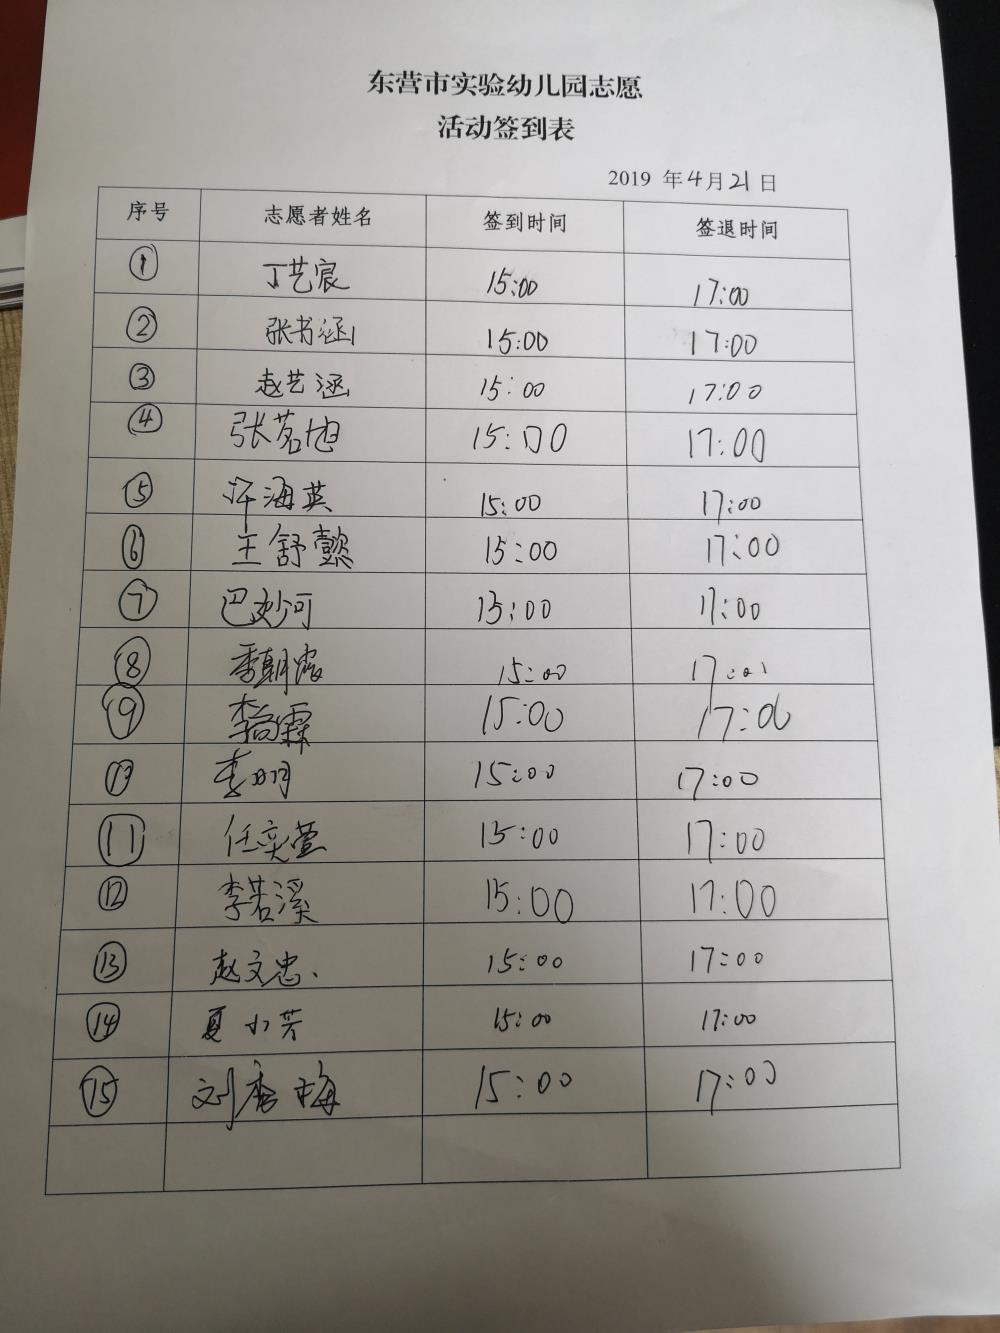 东营市实验幼儿园志愿
活动签到表
2019 年4月21日
序号 志愿者姓名 签到时间 签退时间
① 丁艺宸 15:00 17:00
② 张书涵 15:00 17:00
③ 赵艺涵 15:00 17:00
④ 张茗旭 15:00 17:00
⑤ 许海英 15:00 17:00
⑥ 王舒懿 15:00 17:00
⑦ 巴妙河 15:00 17:00
⑧ 季朝霞 15:00 17:00
⑨ 15:00 17:00
⑩ 李明 15:00 17:00
⑪ 任奕萱 15:00 17:00
⑫ 李若溪 15:00 17:00
⑬ 赵文忠 15:00 17:00
⑭ 夏小芳 15:00 17:00
⑮ 15:00 17:00